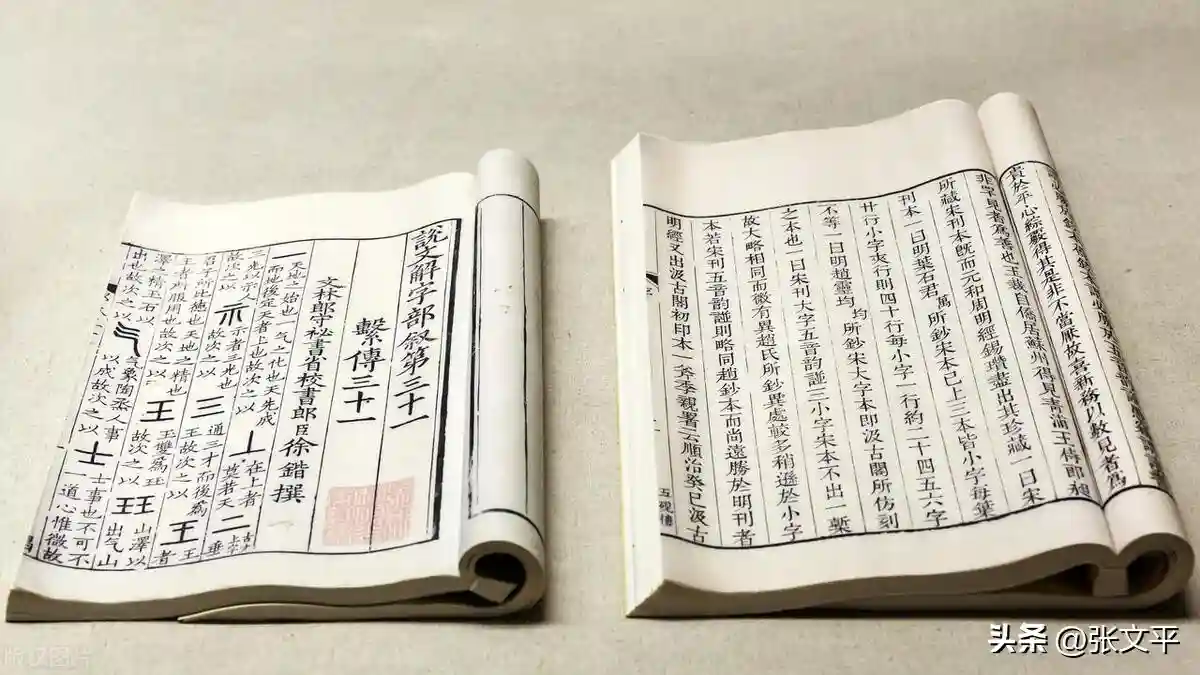 說文解字部敘第三十一
繫傳三十一
文林郎守秘書省校書郎臣徐鍇撰
一天地之始也一气之化也天先成
而地後定天者上也故次之以丄在上者莫若天二
三光以示人故次之以示示者三光也故次之以三通三才而後為王故次之以王者
君子所比德也天地之精也王者所服用也故次之以王王雙為玨故次之以玨
澤之精玉石以出也故次之以气气象陶烝人事以成故次之以士士事也不可不
山澤以出气山
道心惟微故
貴於平心綜覈得其是非不當厭故喜新務以數見者為
非罕見者為善也王栽自僑居蘇州得見青浦王侍郎
所藏宋刊本既而元和周明經錫瓚盡出其珍藏一曰宋
刊本一曰明葉石君萬所鈔宋本已上三本皆小字每葉
廿行小字夾行則四十行每小字一行約二十四五六字
不等一曰明趙靈均均所鈔宋大字本即汲古閣所仿刻
之本也一曰宋刊大字五音韵譜三小字宋本不出一槧
故大略相同而微有異趙氏所鈔異處較多稍遜於小字
本若宋刊五音韵譜則略同趙鈔本而尚遠勝於明刊者
明經又出汲古閣初印本一斧季親署云順治癸巳汲古
五硯樓
头条 @张文平